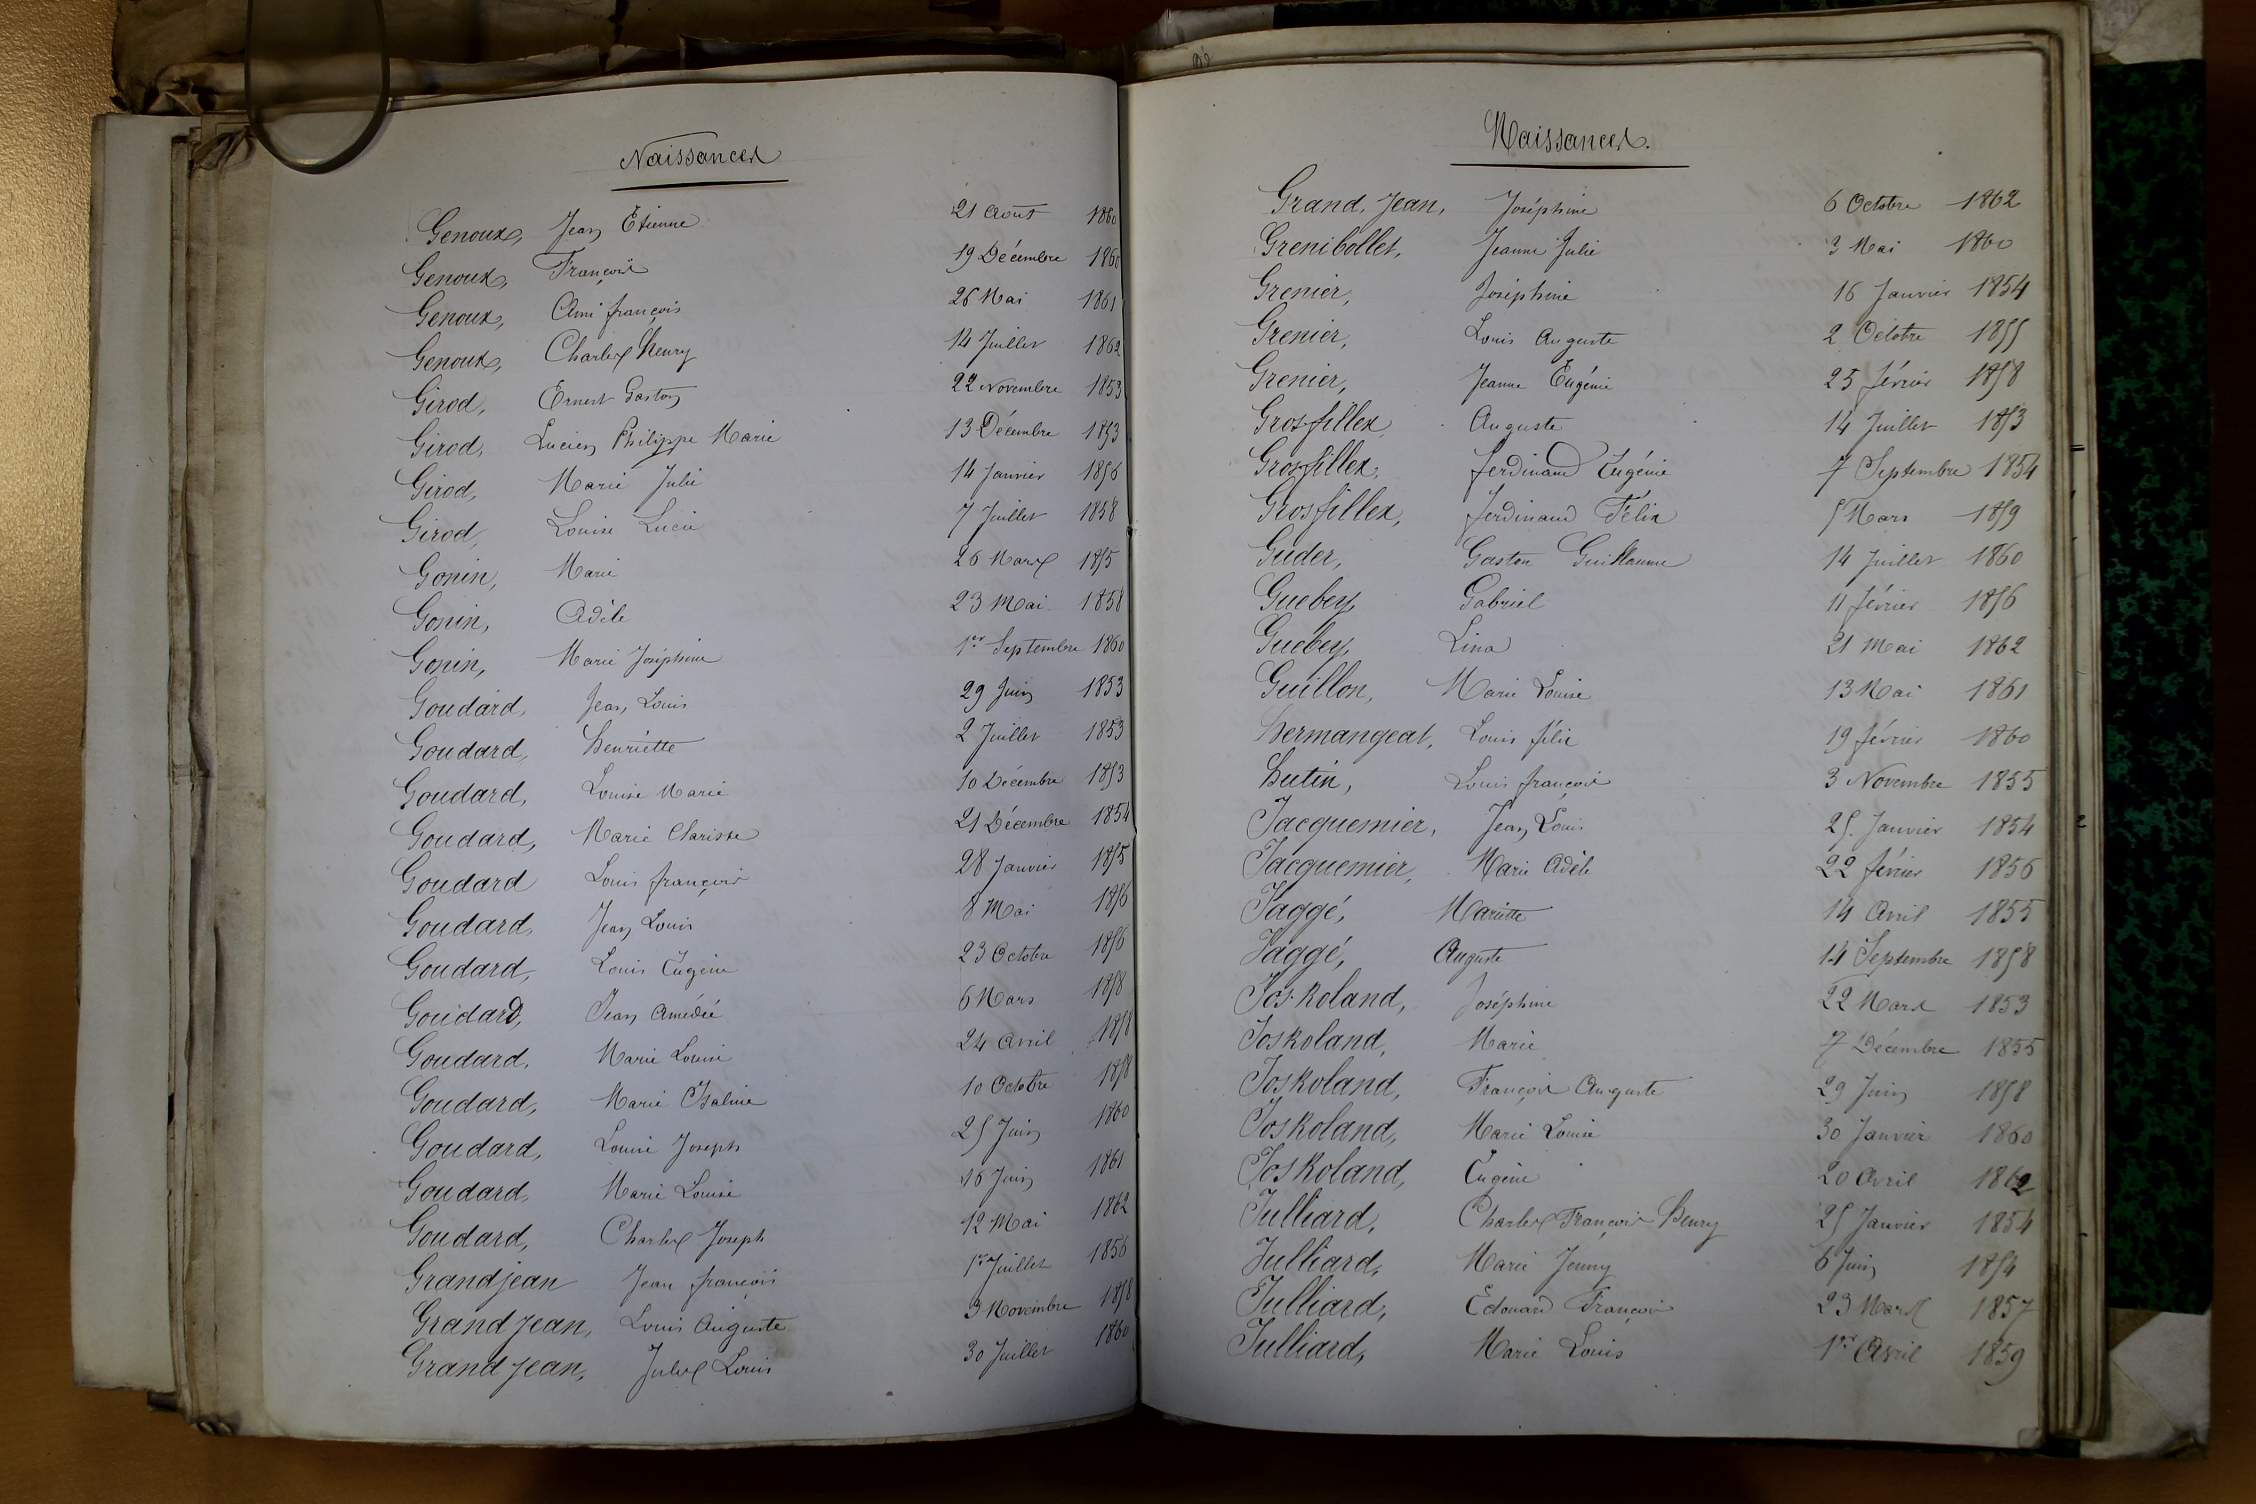 Naissances
Genoux, Jean Étienne 21 Août 1860
Genoux, François 19 Décembre 1860
Genoux, Ami françois 26 Mai 1861
Genoux, Charles henry 14 Juillet 1862
Girod, Ernest Gaston 22 Novembre 1853
Girod, Lucien Philippe Marie 13 Décembre 1853
Girod, Marie Julie 14 Janvier 1856
Girod, Louise Lucie 7 Juillet 1858
Gonin, Marie 26 Mars 1855
Gonin, Adèle 23 Mai 1858
Gonin, Marie Joséphine 1er Septembre 1860
Goudard, Jean Louis 29 Juin 1853
Goudard, henriette 2 Juillet 1853
Goudard, Louise Marie 10 Décembre 1853
Goudard, Marie Clarisse 21 Décembre 1854
Goudard Louis françois 28 Janvier 1855
Goudard, Jean Louis 8 Mai 1856
Goudard, Louis Eugène 23 Octobre 1856
Goudard, Jean Amédée 6 Mars 1858
Goudard, Marie Louise 24 Avril 1858
Goudard, Marie Isaline 10 Octobre 1858
Goudard, Louise Joseph 25 Juin 1860
Goudard, Marie Louise 16 Juin 1861
Goudard, Charles Joseph 12 Mai 1862
Grandjean Jean françois 1er Juillet 1856
Grand jean, Louis Auguste 3 Novembre 1858
Grand jean, Jules Louis 30 Juillet 1860
Naissances.
Grand, Jean, Joséphine 6 Octobre 1862
Grenibollet, Jeanne Julie 3 Mai 1860
Grenier, Joséphine 16 Janvier 1854
Grenier, Louis Auguste 2 Octobre 1855
Grenier, Jeanne Eugénie 25 février 1858
Grosfillex, Auguste 14 Juillet 1853
Grosfillex, ferdinand Eugénie 7 Septembre 1854
Grosfillex, ferdinand Félix 5 Mars 1859
Guder, Gaston Guillaume 14 Juillet 1860
Guebey, Gabriel 11 février 1856
Guebey, Lina 21 Mai 1862
Guillon, Marie Louise 13 Mai 1861
hermangeat, Louis félix 19 février 1860
hutin, Louis françois 3 Novembre 1855
Jacquemier, Jean Louis 25. Janvier 1854
Jacquemier, Marie Adèle 22 février 1856
Jaggé, Mariette 14 Avril 1855
Jaggé, Auguste 14 Septembre 1858
Jos Roland, Joséphine 22 Mars 1853
Joskoland, Marie 7 Décembre 1855
Joskoland, François Auguste 29 Juin 1858
Joskoland, Marie Louise 30 Janvier 1860
Joskoland, Eugène 20 Avril 1862
Julliard, Charles François henry 25 Janvier 1854
Julliard, Marie Jenny 6 Juin 1854
Julliard, Edouard François 23 Mars 1857
Julliard, Marie Louis 1er Avril 1859